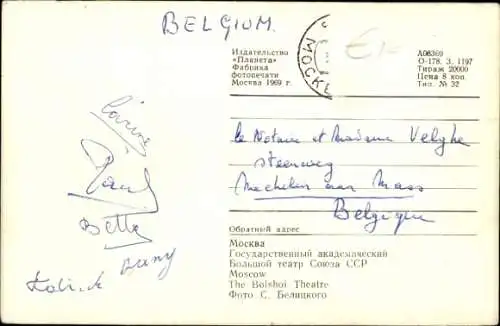 BELGIUM.
Издательство
«Планета»
Фабрика
фотопечати
Москва 1969 г.
МОСКВ
А08369
О-178. 3. 1197
Тираж 20000
Цена 8 коп.
Тип. № 32
Le Notaire et Madame Velghe
steenweg
Mechelen aan Maas
Belgique
Paul
Bette
Dany
Обратный адрес
Москва
Государственный академический
Большой театр Союза ССР
Moscow
The Bolshoi Theatre
Фото С. Белицкого